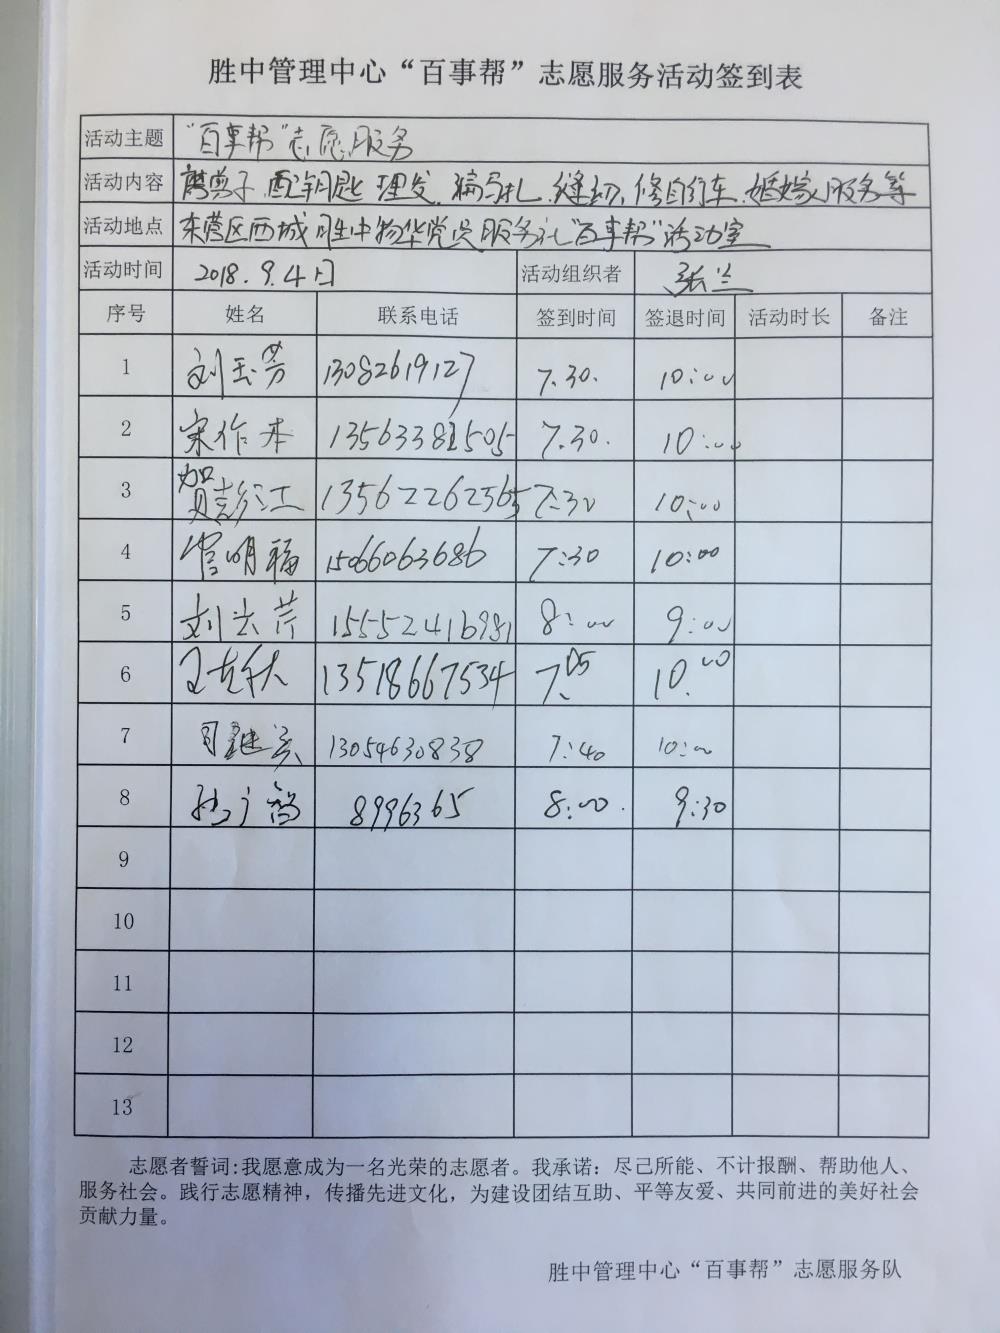 胜中管理中心“百事帮”志愿服务活动签到表
活动主题 “百事帮”志愿服务
活动内容 磨剪子、配钥匙、理发、编马扎、缝纫、修自行车、婚嫁服务等
活动地点 东营区西城胜中物华党员服务社“百事帮”活动室
活动时间 2018.9.4日 活动组织者 张兰
序号 姓名 联系电话 签到时间 签退时间 活动时长 备注
1 刘玉芳 13082619127 7.30. 10:00
2 宋作本 1356338 505 7.30. 10:00
3 贺彭江 13562262565 7:30 10:00
4 管明福 15066063686 7:30 10:00
5 刘兰芹 15552416981 8:00 9:00
6 王 秋 13518667534 7.05 10.00
7 司继 13054630838 7:40 10:00
8 孙广 8996365 8:00. 9:30
9
10
11
12
13
志愿者誓词:我愿意成为一名光荣的志愿者。我承诺：尽己所能、不计报酬、帮助他人、
服务社会。践行志愿精神，传播先进文化，为建设团结互助、平等友爱、共同前进的美好社会
贡献力量。
胜中管理中心“百事帮”志愿服务队